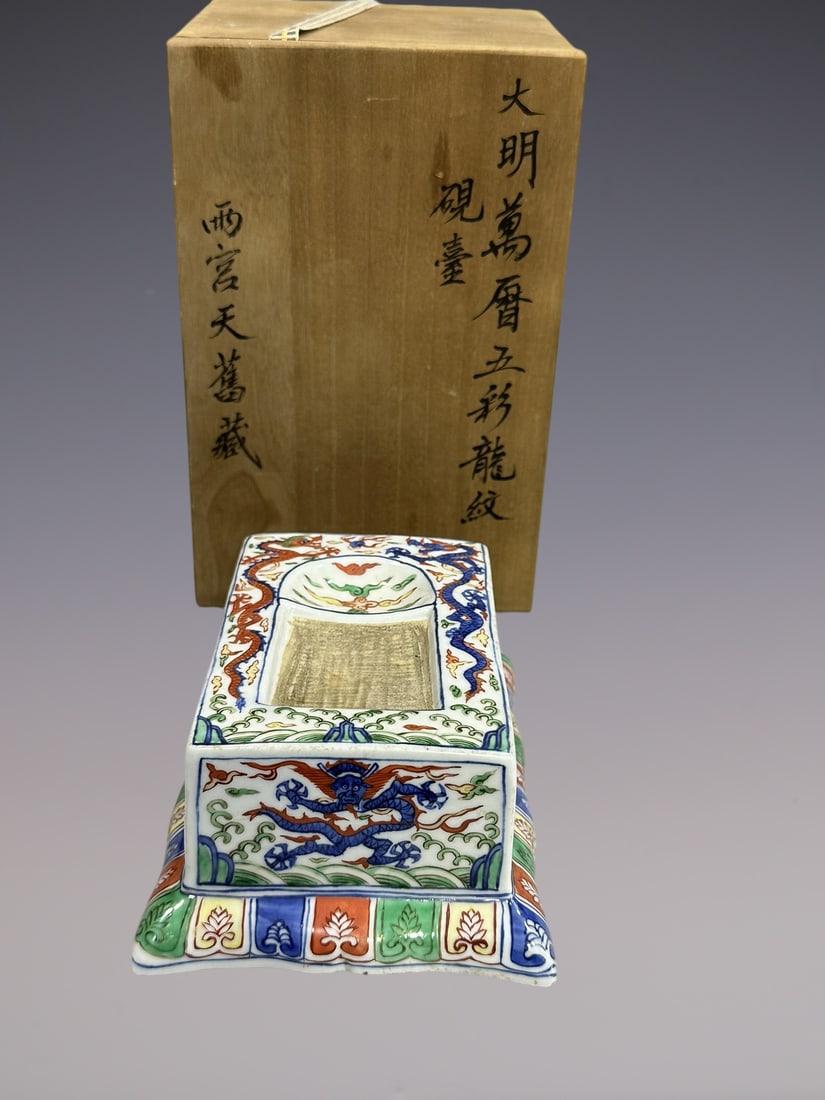 大明萬曆五彩龍紋
硯臺
雨宮天舊藏